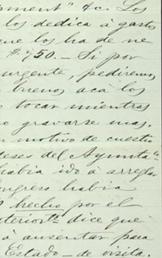 pment" &c. Los
los dedica á gastos
que los ha de ne
$750.- Si por
urgente, pediremos
buenos acá los
tocar mientras
no gravarse mas.
motivo de cuestio
eses del Ayunta
había ido á arregla
ongreso había
hecho por el
anteriores dice que
á ausentar para
Estado - de visita.